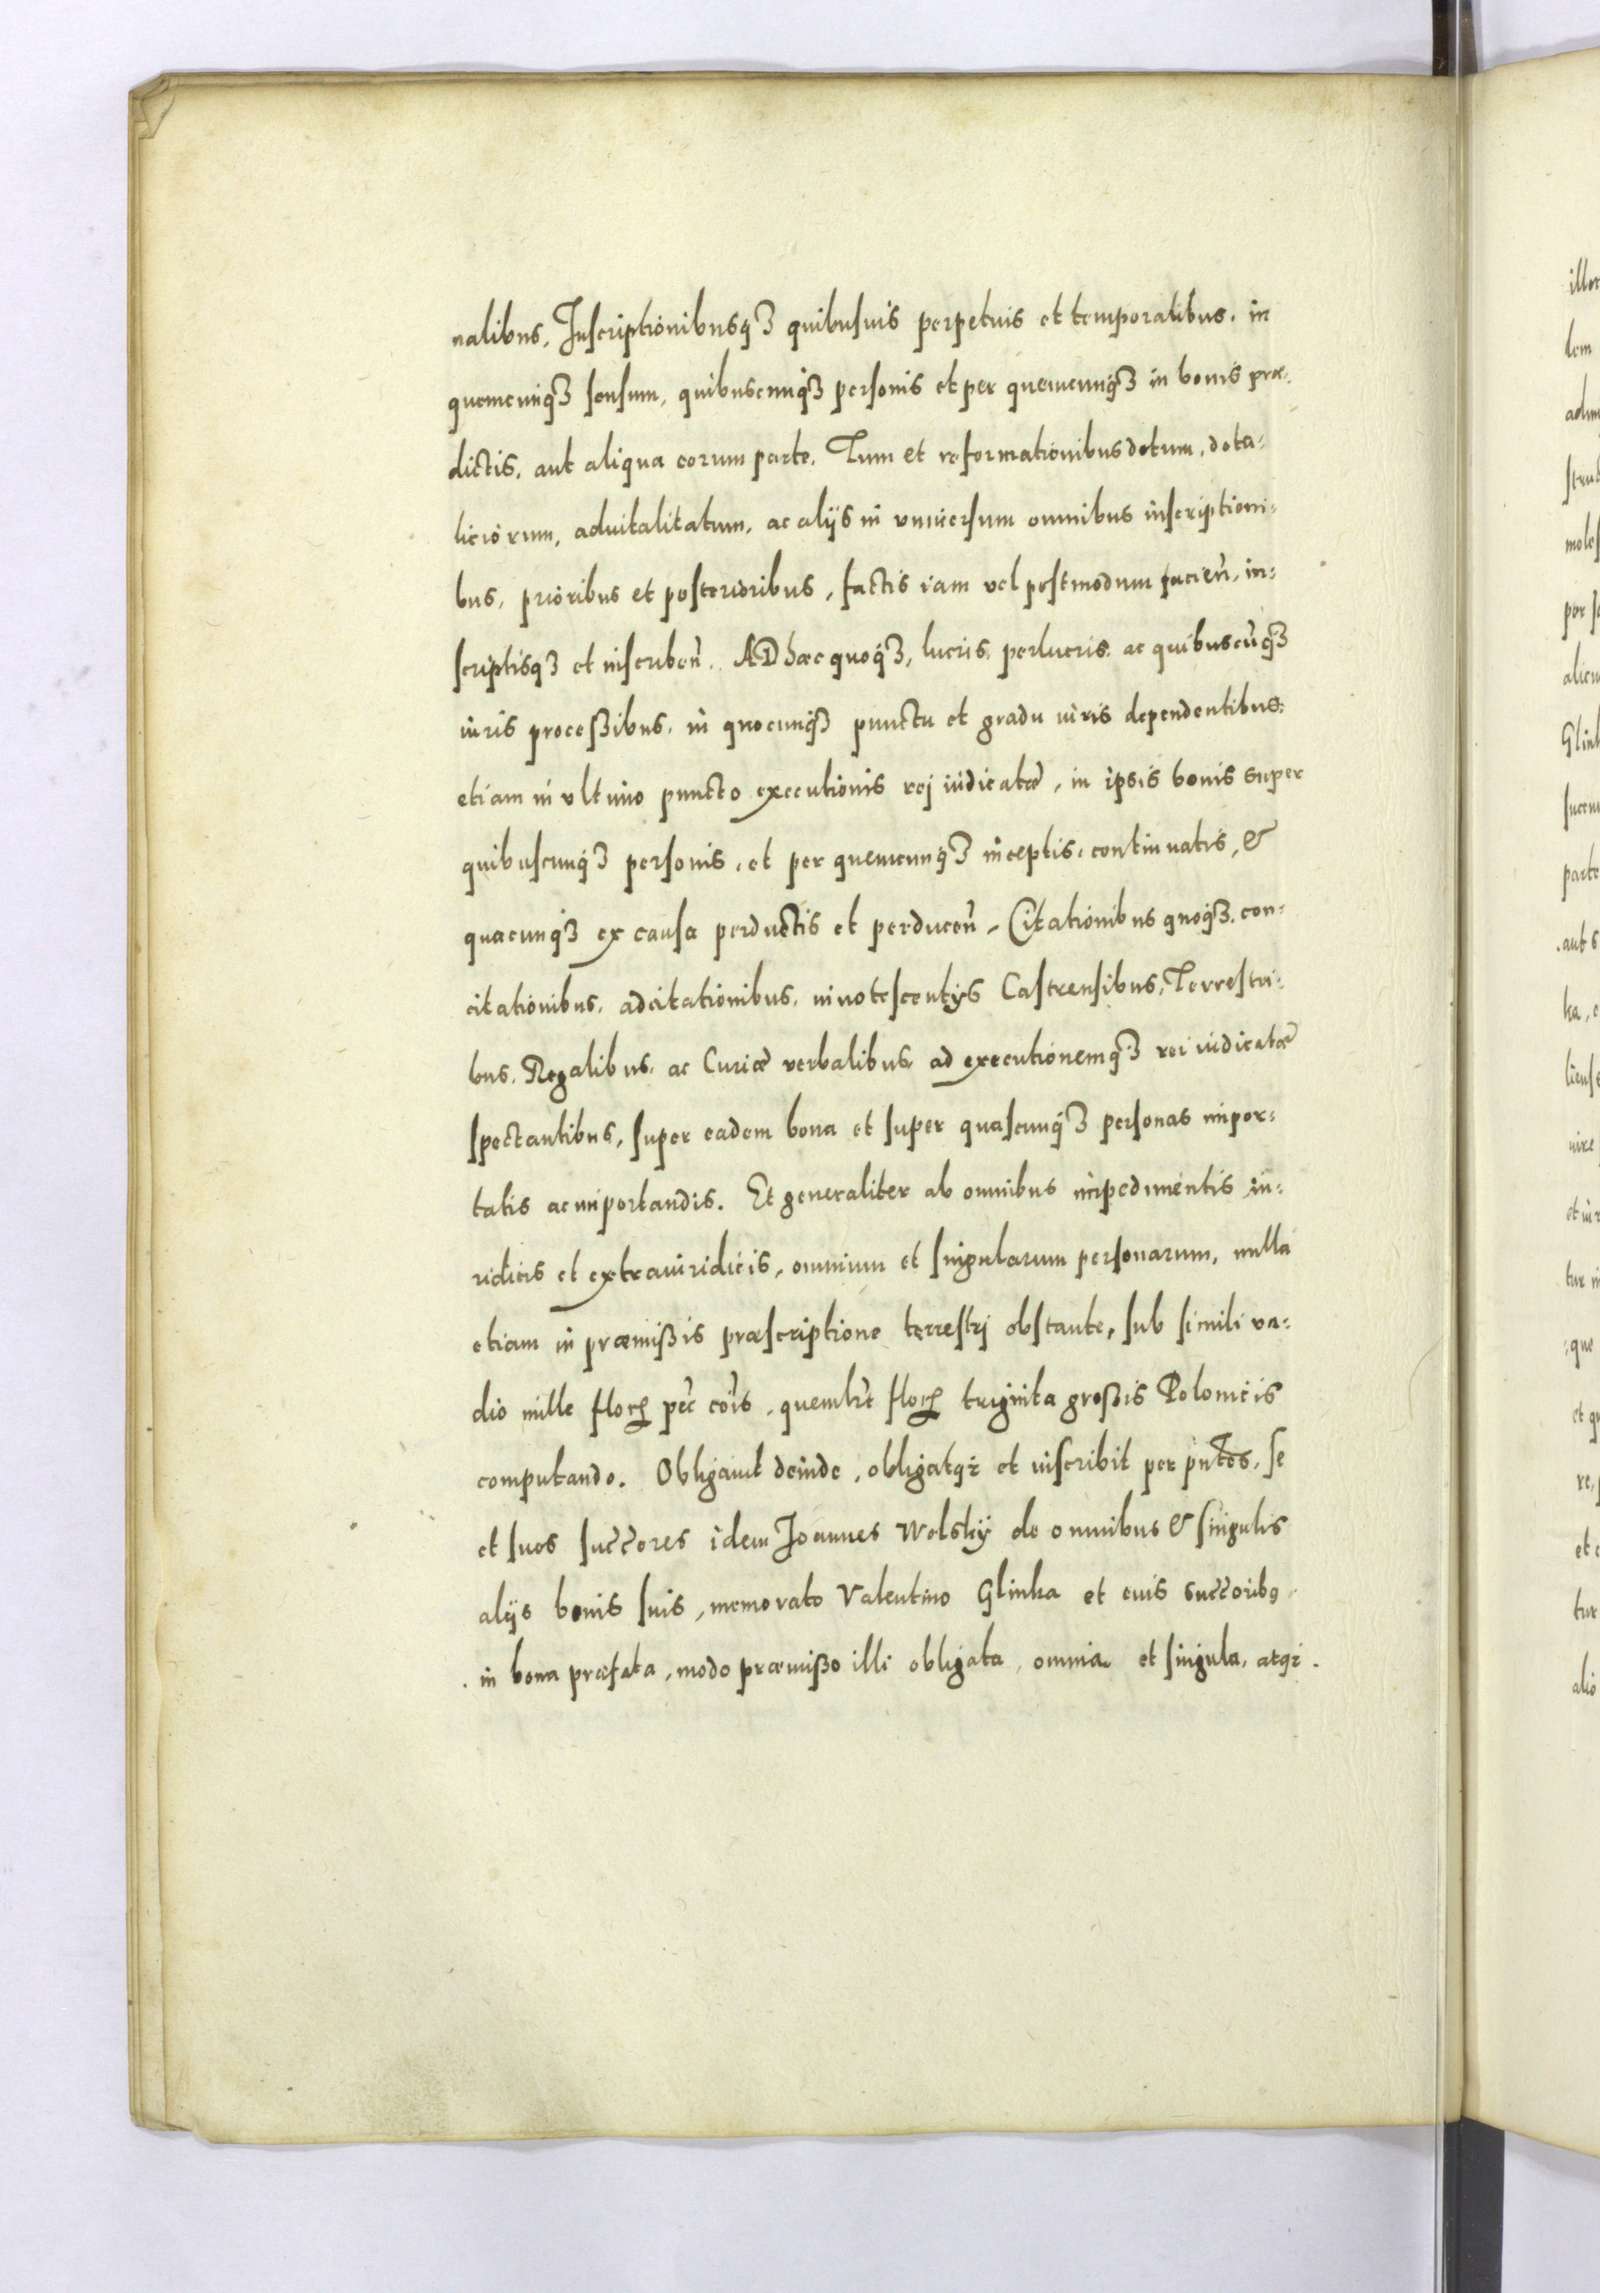 nalibus, Inscriptionibusqȝ quibusuis perpetuis et temporalibus, in
quemcunqȝ sensum, quibuscunqȝ personis et per quemcunqȝ in bonis præ-
dictis, aut aliqua eorum parte. Tum et reformationibus dotum, dota-
liciorum, aduitalitatum, ac alijs in vniuersum omnibus inscriptioni-
bus, prioribus et posterioribus, factis iam vel postmodum facien̄, in-
scriptisqȝ et inscriben̄. AD hæc quoqȝ, lucris, perlucris, ac quibuscūqȝ
iuris processibus, in quocunqȝ punctu et gradu iuris dependentibus:
etiam in vltimo puncto executionis rej iudicatæ, in ipsis bonis super
quibuscunqȝ personis, et per quemcunqȝ inceptis, continuatis, &
quacunqȝ ex causa perductis et perducen̄. Citationibus quoqȝ, con-
citationibus, adcitationibus, innotescentijs Castrensibus, Terrestri-
bus, Regalibus, ac Curiæ verbalibus, ad executionemqȝ rei iudicatæ
spectantibus, super eadem bona et super quascunqȝ personas impor-
tatis ac importandis. Et generaliter ab omnibus impedimentis iu-
ridicis et extraiuridicis, omnium et singularum personarum, nulla
etiam in præmißis præscriptione terrestrj obstante, sub simili va-
dio mille floꝝ pec̄ cōis, quemlꝫt floꝝ triginta großis Polonicis
computando. Obligauit deinde, obligatqꝫ et inscribit per pn̄tes, se
et suos suc̄c̄ores idem Joannes Wolsky de omnibus & singulis
alijs bonis suis, memorato Valentino Glinka et euis suc̄c̄oribꝯ
in bona præfata, modo præmißo illi obligata, omnia et singula, atqꝫ
illor
dem
adim
strud
moles
per s
alicu
Glink
succeſ
parte
aut s
ka, e
licus
uire
et iur
tur in
que
et qu
re,
et c
tur
alio